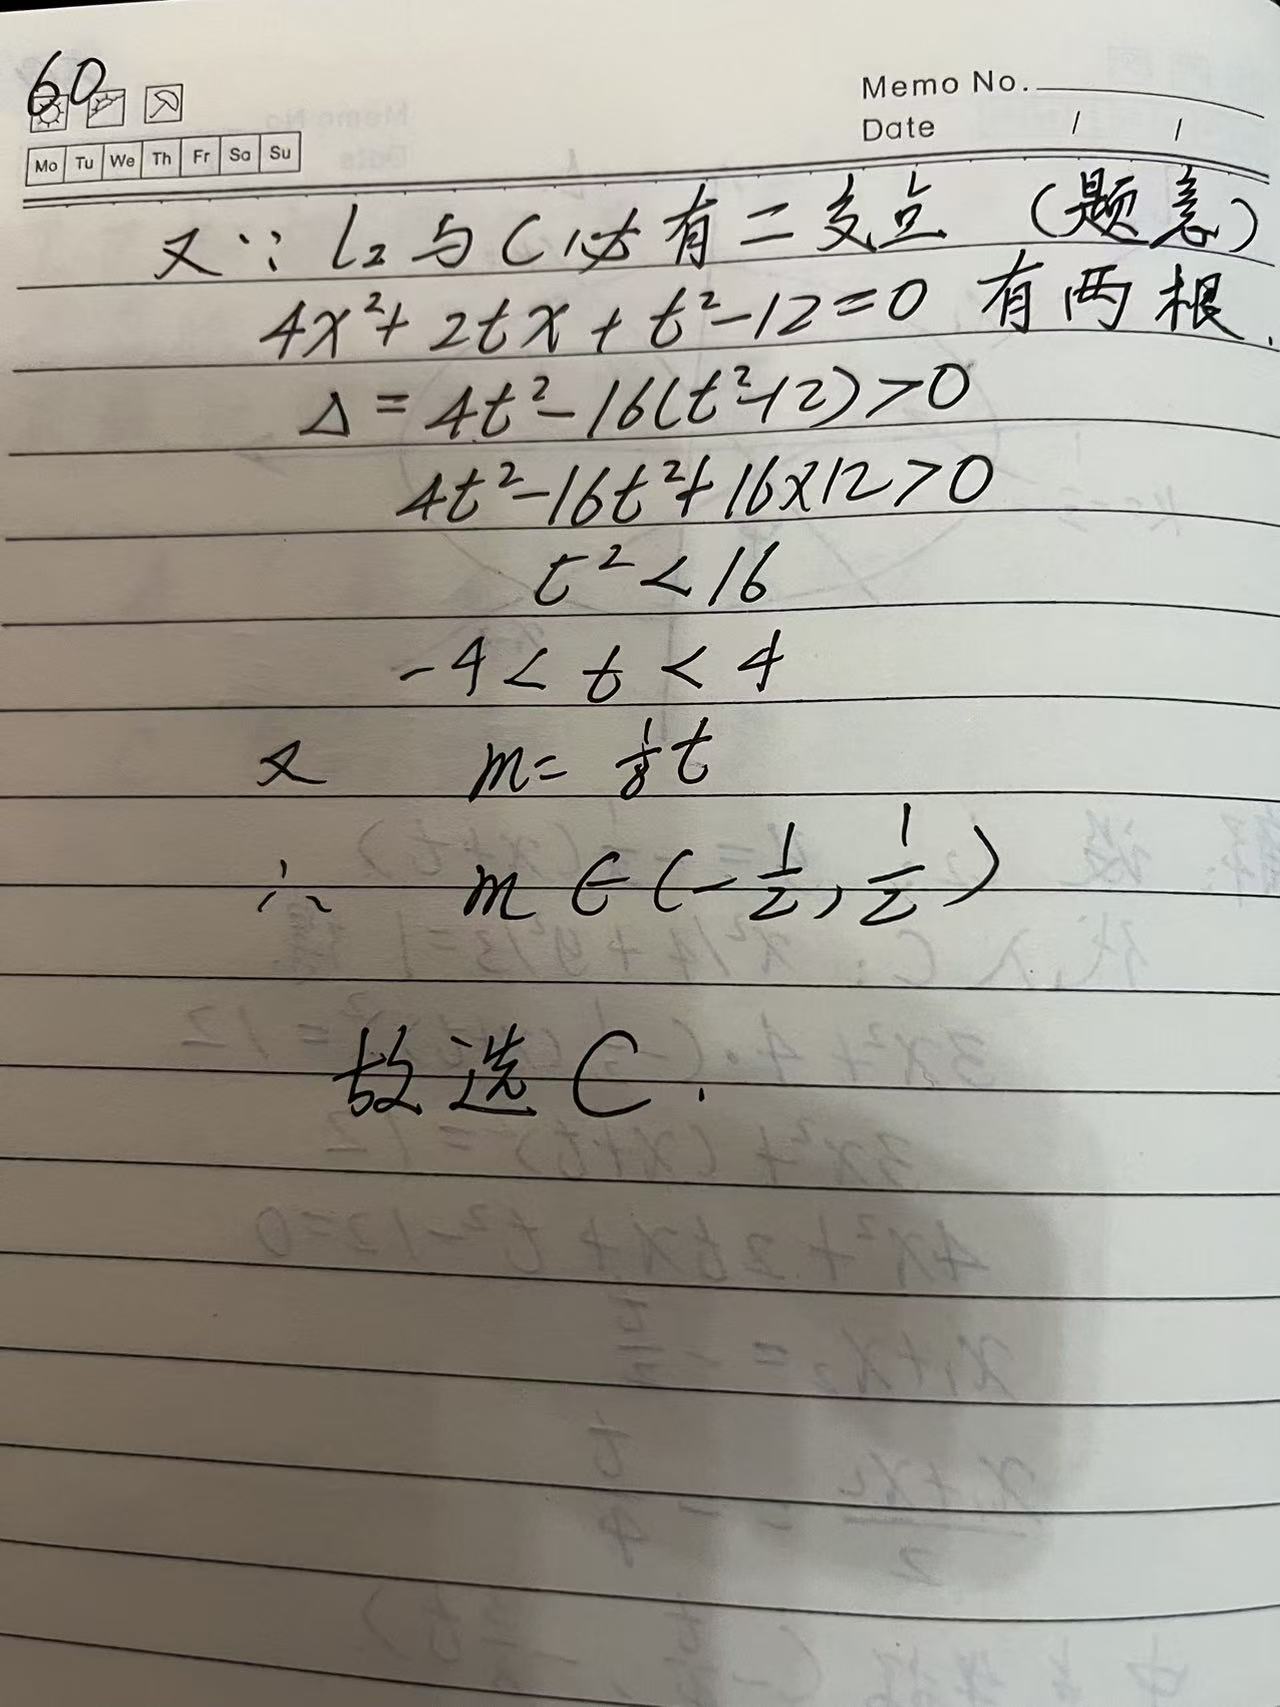 60
Memo No.
Mo Tu We Th Fr Sa Su
Date / /
又∵ l₂与C必有二交点 (题意)
4x²+2tx+t²-12=0 有两根.
Δ=4t²-16(t²-12)>0
4t²-16t²+16×12>0
t²<16
-4<t<4
又 m=1/8 t
∴ m∈(-1/2, 1/2)
故选C.